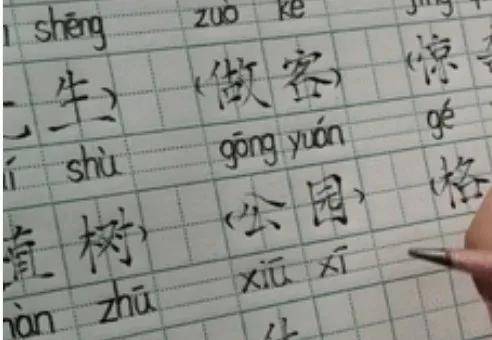 shēng zuò kè
生) (做客) (惊
shù gōng yuán gé
植树) (公园) (格
zhū xiū xī